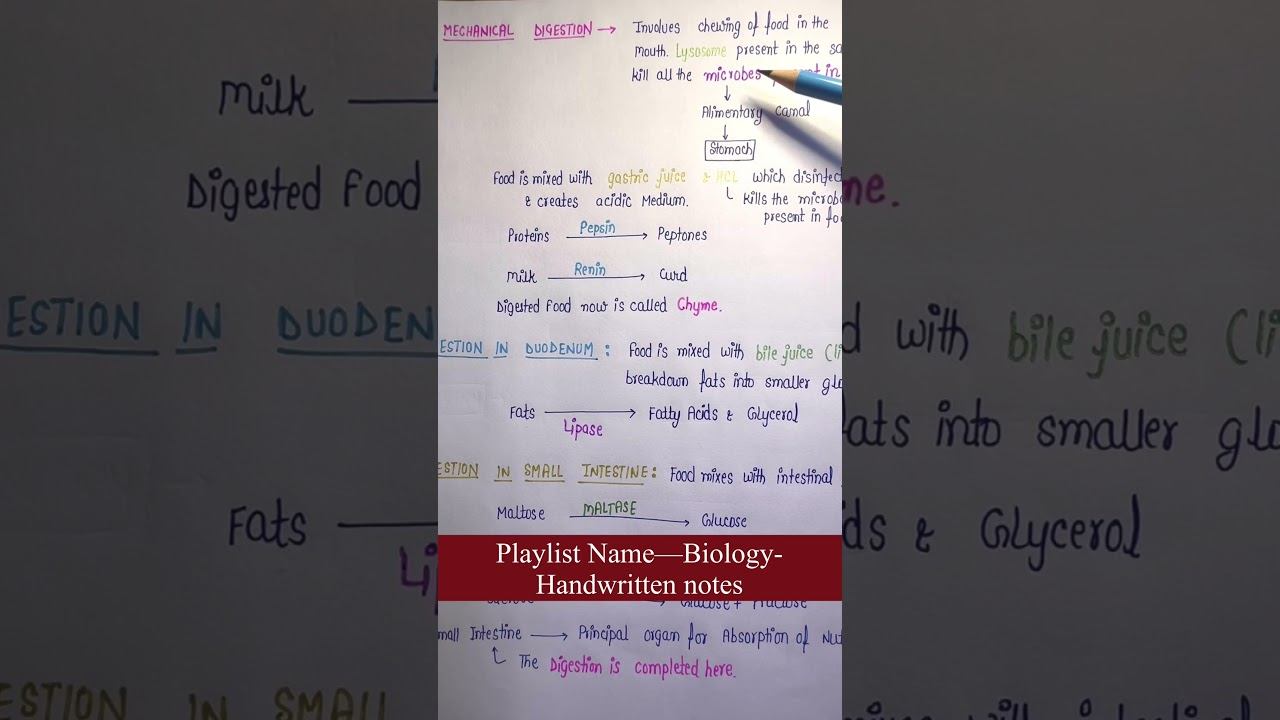 MECHANICAL DIGESTION → Involves chewing of food in the
mouth. Lysosome present in the sa
kill all the microbes in
↓
Alimentary canal
↓
Stomach
Food is mixed with gastric juice & HCL which disinfec
& creates acidic Medium. kills the microb
present in foo
Proteins Pepsin → Peptones
Milk Renin → Curd
Digested Food now is called Chyme.
ESTION IN DUODENUM : Food is mixed with bile juice (li
breakdown fats into smaller glo
Fats → Fatty Acids & Glycerol
Lipase
ESTION IN SMALL INTESTINE : Food mixes with intestinal
Maltose MALTASE → Glucose
Playlist Name—Biology-
Handwritten notes
mall Intestine → Principal organ for Absorption of Nut
The Digestion is completed here.
Milk
Digested Food
me.
ESTION IN DUODENU
d with bile juice (li
fats into smaller glo
Fats
Li
ds & Glycerol
ESTION IN SMALL